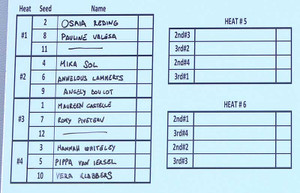 Heat Seed Name
#1
2 OSAIA REDING
8 PAULINE VALESA
11
#2
4 MIKA SOL
6 ANNELOUS LAMMERTS
9 ANGÉLY BOULOT
#3
1 MAUREEN CASTELLE
7 ROMY PINETEAU
12
#4
3 HANNAH WHITELEY
5 PIPPA VAN IERSEL
10
HEAT # 5
2nd#3
3rd#2
2nd#4
3rd#1
HEAT # 6
2nd#1
3rd#4
2nd#2
3rd#3